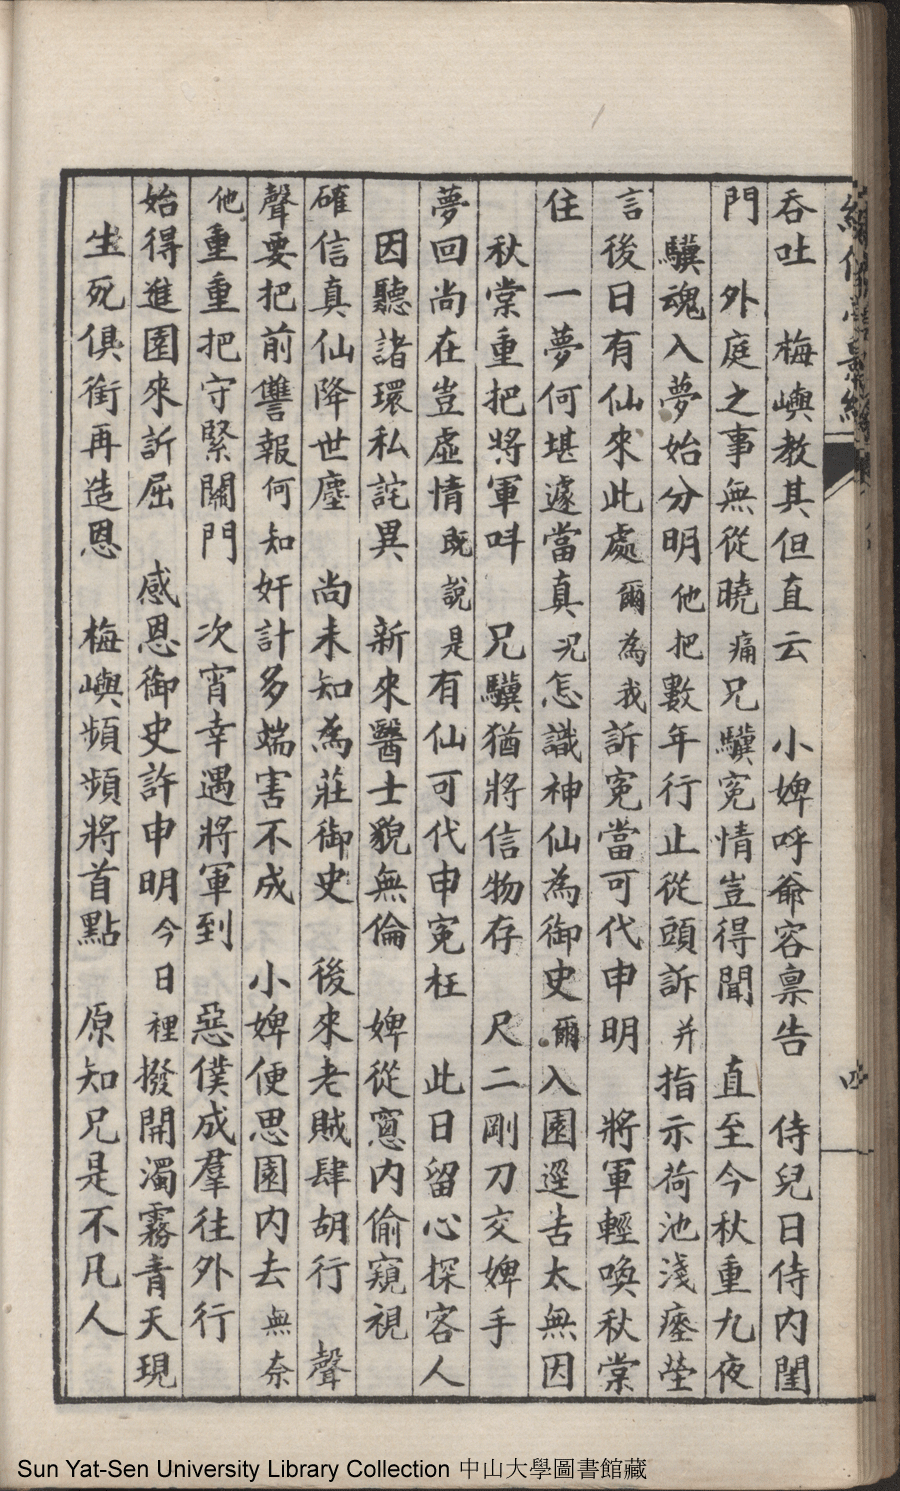 吞吐　梅嶼教其但直云　小婢呼爺容禀告　侍兒日侍內閨
門　外庭之事無從曉痛兄驥冤情豈得聞　直至今秋重九夜
驥魂入夢始分明他把數年行止從頭訴并指示荷池淺瘞塋
言後日有仙來此處爾為我訴冤當可代申明　將軍輕喚秋棠
住　一夢何堪遽當真况怎識神仙為御史爾入園遲吿太無因
秋棠重把將軍呌　兄驥猶將信物存　尺二剛刀交婢手
夢回尚在豈虛情既說是有仙可代申冤枉　此日留心探客人
因聽諸環私詫異　新來醫士貌無倫　婢從窻內偷窺視
確信真仙降世塵　尚未知為莊御史　後來老賊肆胡行　聲
聲要把前讐報何知奸計多端害不成　小婢便思園內去無奈
他重重把守緊關門　次宵幸遇將軍到　惡僕成羣往外行
始得進園來訴屈　感恩御史許申明今日裡撥開濁霧青天現
生死俱銜再造恩　梅嶼頻頻將首點　原知兄是不凡人
四
Sun Yat-Sen University Library Collection 中山大學圖書館藏